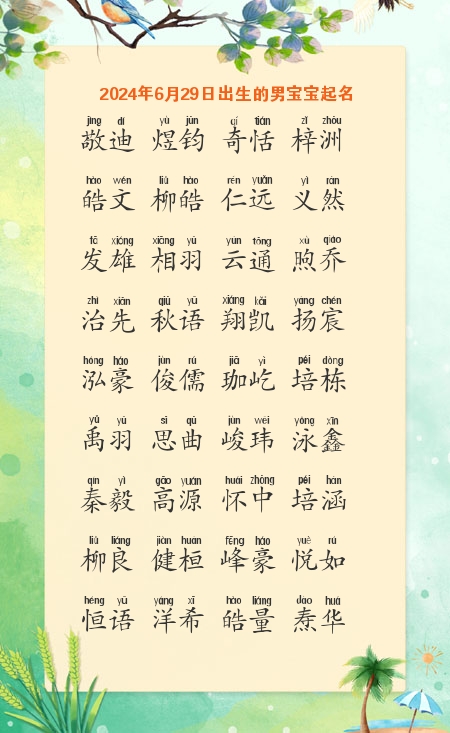 2024年6月29日出生的男宝宝起名
jìng dí yù jūn qí tián zǐ zhōu
敬迪 煜钧 奇恬 梓洲
hào wén liǔ hào rén yuǎn yì rán
皓文 柳皓 仁远 义然
fā xióng xiāng yǔ yún tōng xù qiáo
发雄 相羽 云通 煦乔
zhì xiān qiū yǔ xiáng kǎi yáng chén
治先 秋语 翔凯 扬宸
hóng háo jùn rú jiā yì péi dòng
泓豪 俊儒 珈屹 培栋
yǔ yǔ sī qǔ jùn wěi yǒng xīn
禹羽 思曲 峻玮 泳鑫
qín yì gāo yuán huái zhōng péi hán
秦毅 高源 怀中 培涵
liǔ liáng jiàn huán fēng háo yuè rú
柳良 健桓 峰豪 悦如
héng yǔ yáng xī hào liàng dao huá
恒语 洋希 皓量 焘华